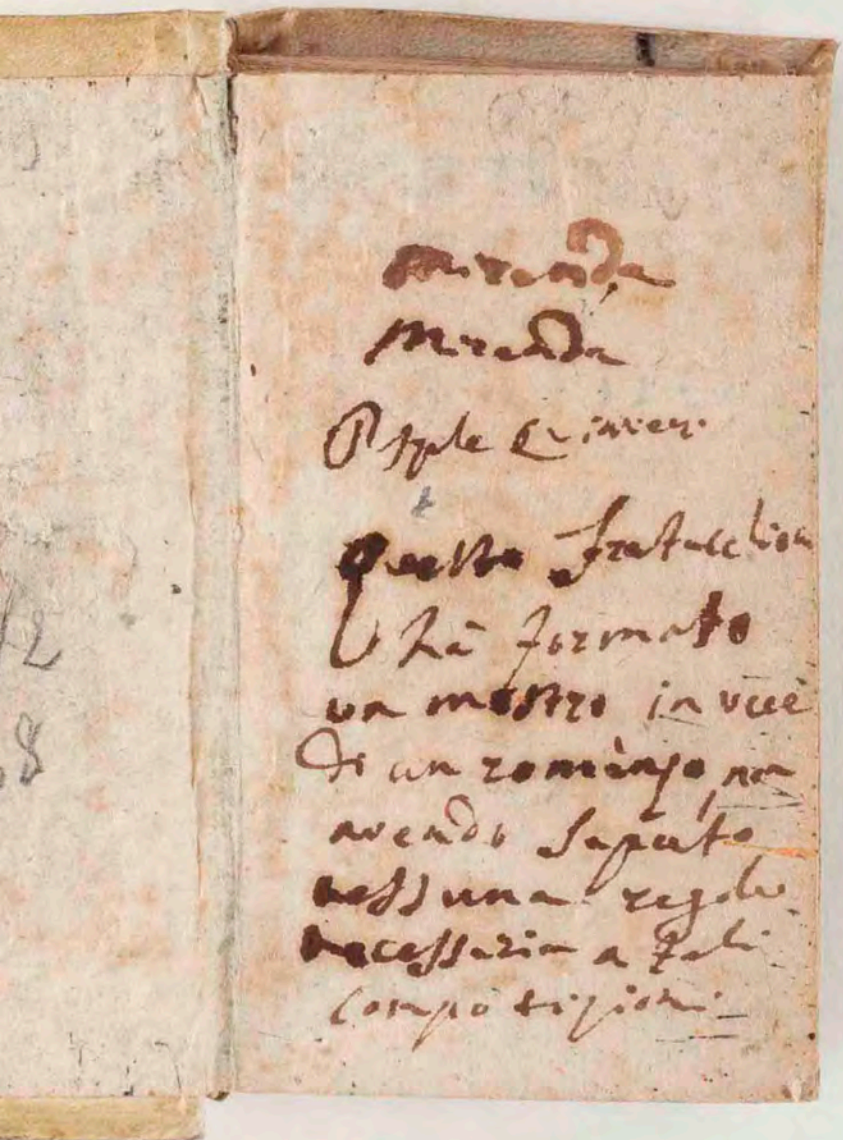 Miranda
Miranda
questo fratacchion
hà formato
un mostro in vece
di un romanzo, non
avendo saputo
nessuna regola
necessaria a tali
compositioni
2
8